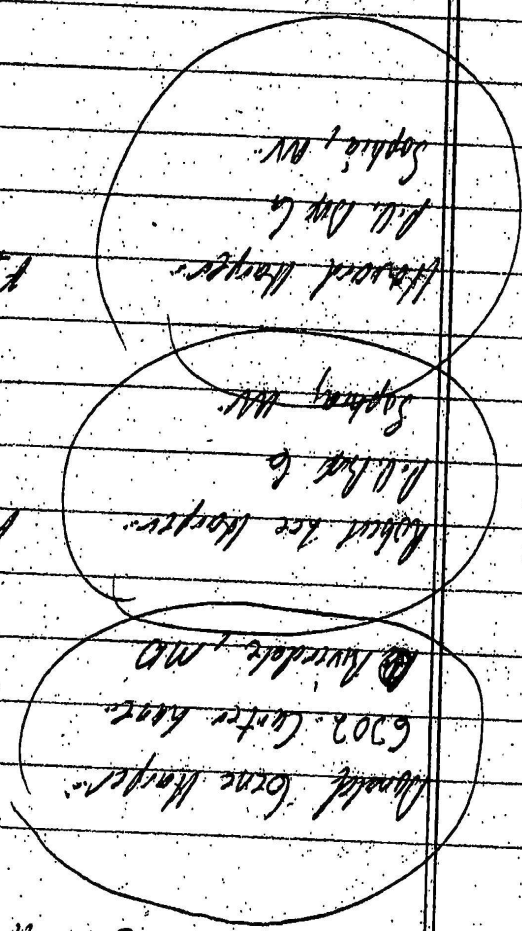 Donald Gene Harper
Carter Lane
Riverdale, MD
Robert Lee Harper
P.O. Box
Sophia, WV
Howard Harper
P.O. Box
Sophia, WV